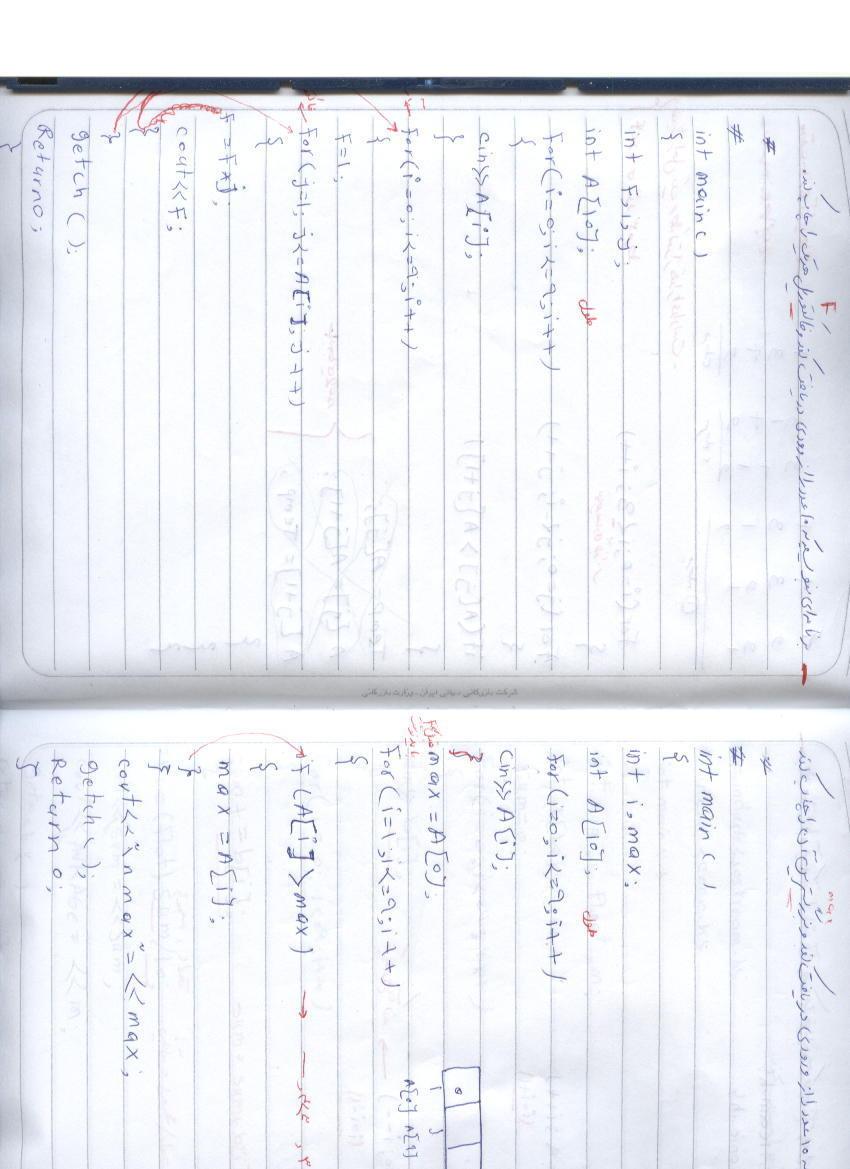 برنامه ای بنویسید که ۱۰ عدد را از ورودی دریافت کند و فاکتوریل هر یک را چاپ کند
F
#
#
int main()
{
int F,i,j;
int A[10];
طول
for(i=0;i<=9;i++)
{
cin>>A[i];
}
for(i=0;i<=9;i++)
{
F=1;
for(j=1;j<=A[i];j++)
{
F=F*j;
}
cout<<F;
}
getch();
Return0;
}
شرکت بازرگانی دولتی ایران - وزارت بازرگانی
۱۰ عدد را از ورودی دریافت کند و بزرگترین آن را چاپ کند
max
#
#
int main()
{
int i,max;
int A[10];
طول
for(i=0;i<=9;i++)
cin>>A[i];
}
max=A[0];
for(i=1;i<=9;i++)
{
if(A[i]>max)
{
max=A[i];
}
}
cout<<"\n max"=<<max;
getch();
Return0;
}
0
A[0] A[1]